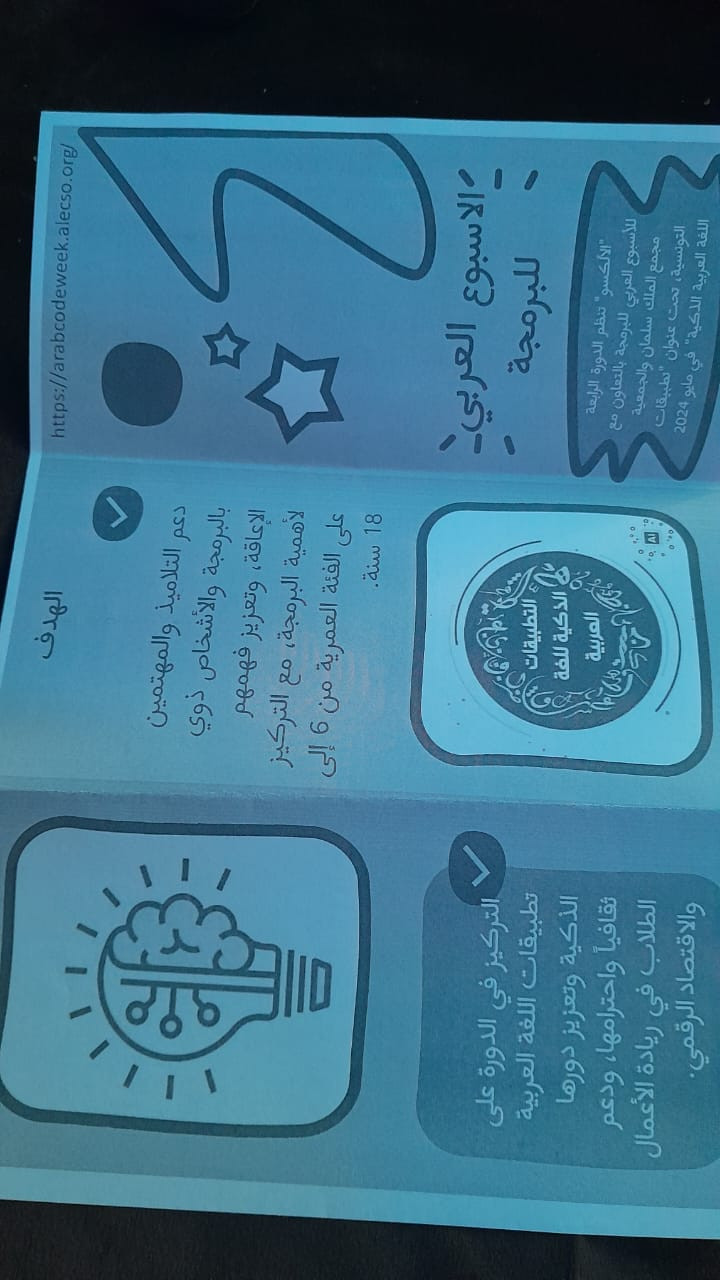 https://arabcodeweek.alecso.org/
الاسبوع العربي
للبرمجة
"الألكسو" تنظم الدورة الرابعة
للأسبوع العربي للبرمجة بالتعاون مع
مجمع الملك سلمان والجمعية
التونسية، تحت عنوان "تطبيقات
اللغة العربية الذكية" في مايو 2024
الهدف
دعم التلاميذ والمهتمين
بالبرمجة والأشخاص ذوي
الإعاقة، وتعزيز فهمهم
لأهمية البرمجة، مع التركيز
على الفئة العمرية من 6 إلى
18 سنة.
التطبيقات
الذكية للغة
العربية
AI
التركيز في الدورة على
تطبيقات اللغة العربية
الذكية وتعزيز دورها
ثقافياً واحترامها، ودعم
الطلاب في ريادة الأعمال
والاقتصاد الرقمي.